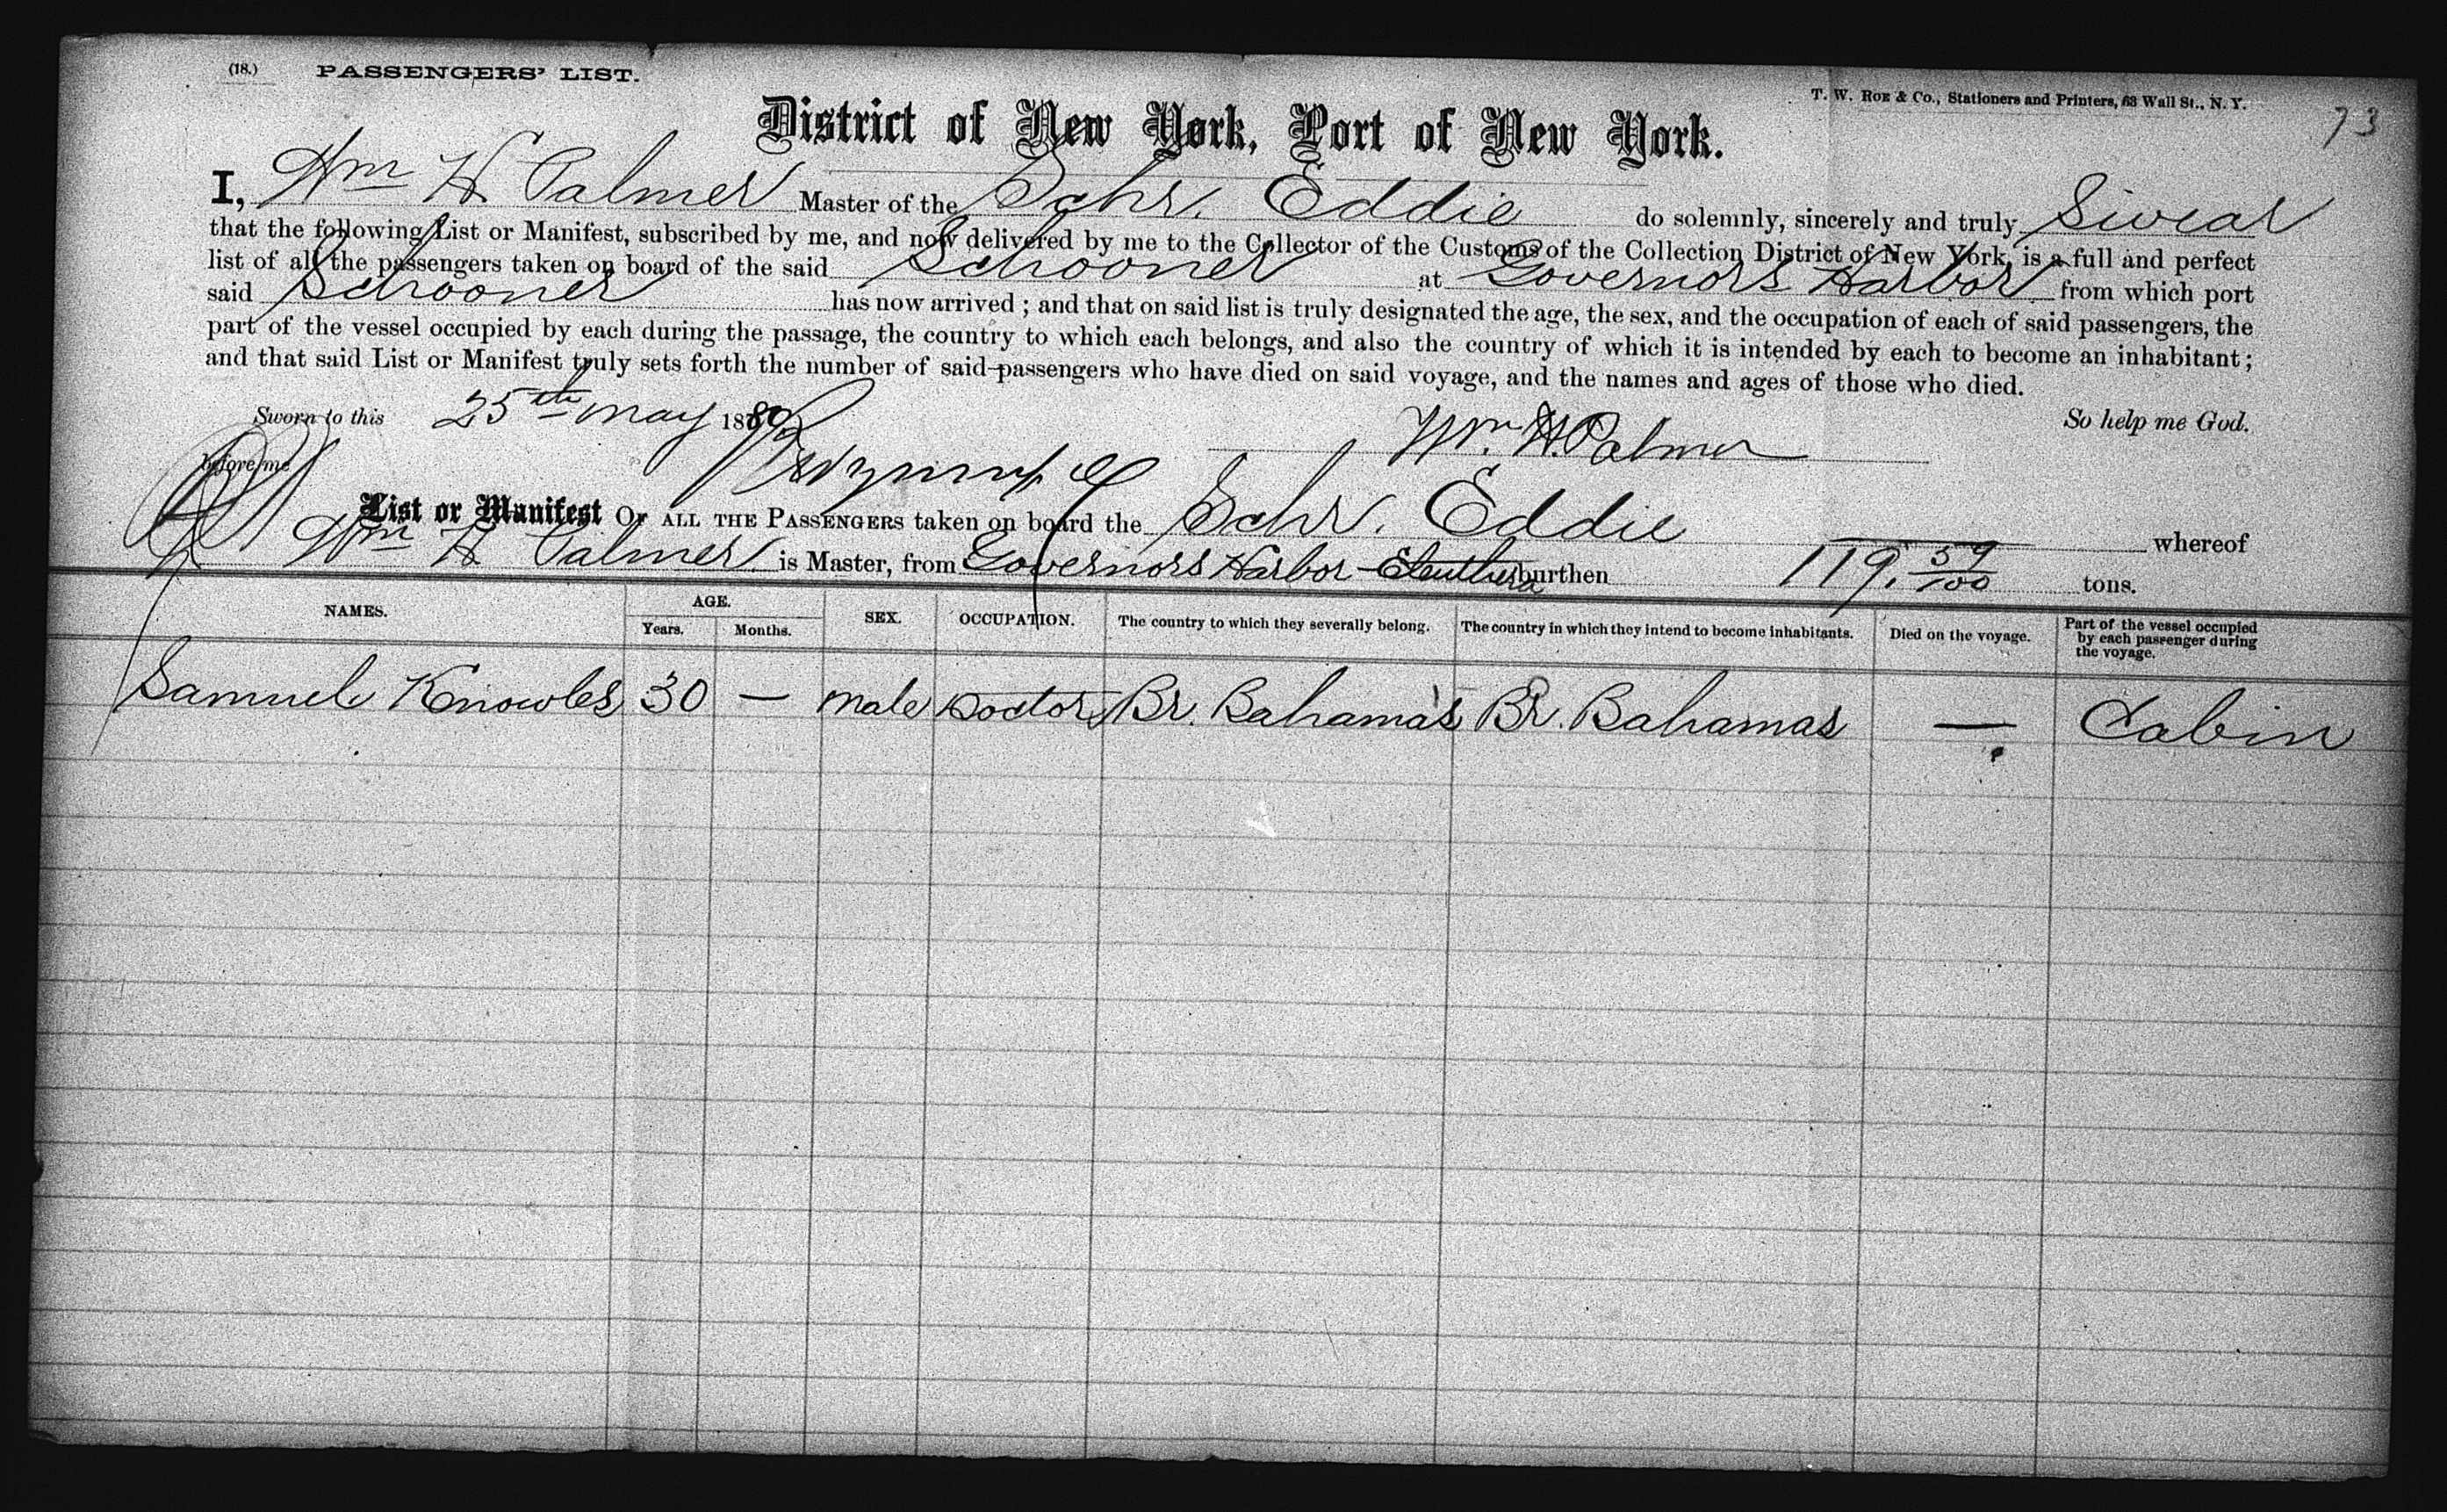 (18.) PASSENGERS' LIST.
T. W. ROE & Co., Stationers and Printers, 63 Wall St., N. Y.
73
District of New York, Port of New York.
I, Wm H Palmer Master of the Schr. Eddie do solemnly, sincerely and truly Swear
that the following List or Manifest, subscribed by me, and now delivered by me to the Collector of the Customs of the Collection District of New York, is a full and perfect
list of all the passengers taken on board of the said Schooner at Governors Harbor from which port
said Schooner has now arrived; and that on said list is truly designated the age, the sex, and the occupation of each of said passengers, the
part of the vessel occupied by each during the passage, the country to which each belongs, and also the country of which it is intended by each to become an inhabitant;
and that said List or Manifest truly sets forth the number of said passengers who have died on said voyage, and the names and ages of those who died.
Sworn to this 25th May 188 So help me God.
before me Wm. H. Palmer
List or Manifest OF ALL THE PASSENGERS taken on board the Schr. Eddie whereof
Wm H Palmer is Master, from Governors Harbor - Eleuthera burthen 119. 59/100 tons.
NAMES. AGE. Years. Months. SEX. OCCUPATION. The country to which they severally belong. The country in which they intend to become inhabitants. Died on the voyage. Part of the vessel occupied by each passenger during the voyage.
Samuel Knowles 30 — male Doctor Br. Bahamas Br. Bahamas — Cabin